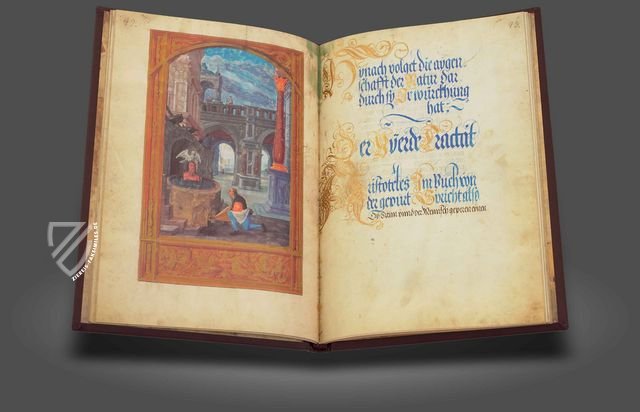 Hernach volget die aygen-
schafft der Natur dar
durch sy Ir würckhung
hat:
Der Vierde Tractat
Aristoteles Im Buch von
der gepurt Spricht also
ZIEREIS-FAKSIMILES.DE